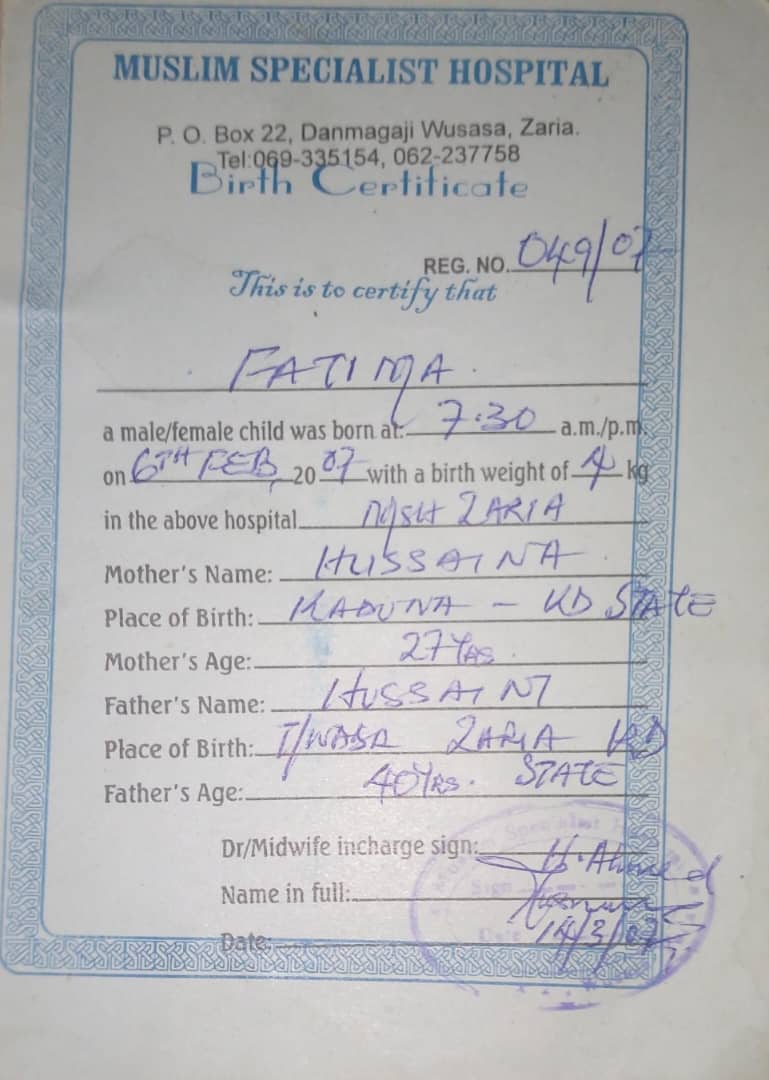 MUSLIM SPECIALIST HOSPITAL
P. O. Box 22, Danmagaji Wusasa, Zaria.
Tel:069-335154, 062-237758
Birth Certificate
REG. NO. 049/07
This is to certify that
FATIMA
a male/female child was born at: 7:30 a.m./p.m.
on 6TH FEB 20 07 with a birth weight of 4 kg
in the above hospital MSH ZARIA
Mother's Name: HUSSAINA
Place of Birth: KADUNA - KD STATE
Mother's Age: 27 YRS
Father's Name: HUSSAINI
Place of Birth: ZARIA KD
STATE
Father's Age: 40 YRS.
Dr/Midwife incharge sign: Ahmed
Name in full:
Date: 14/3/07